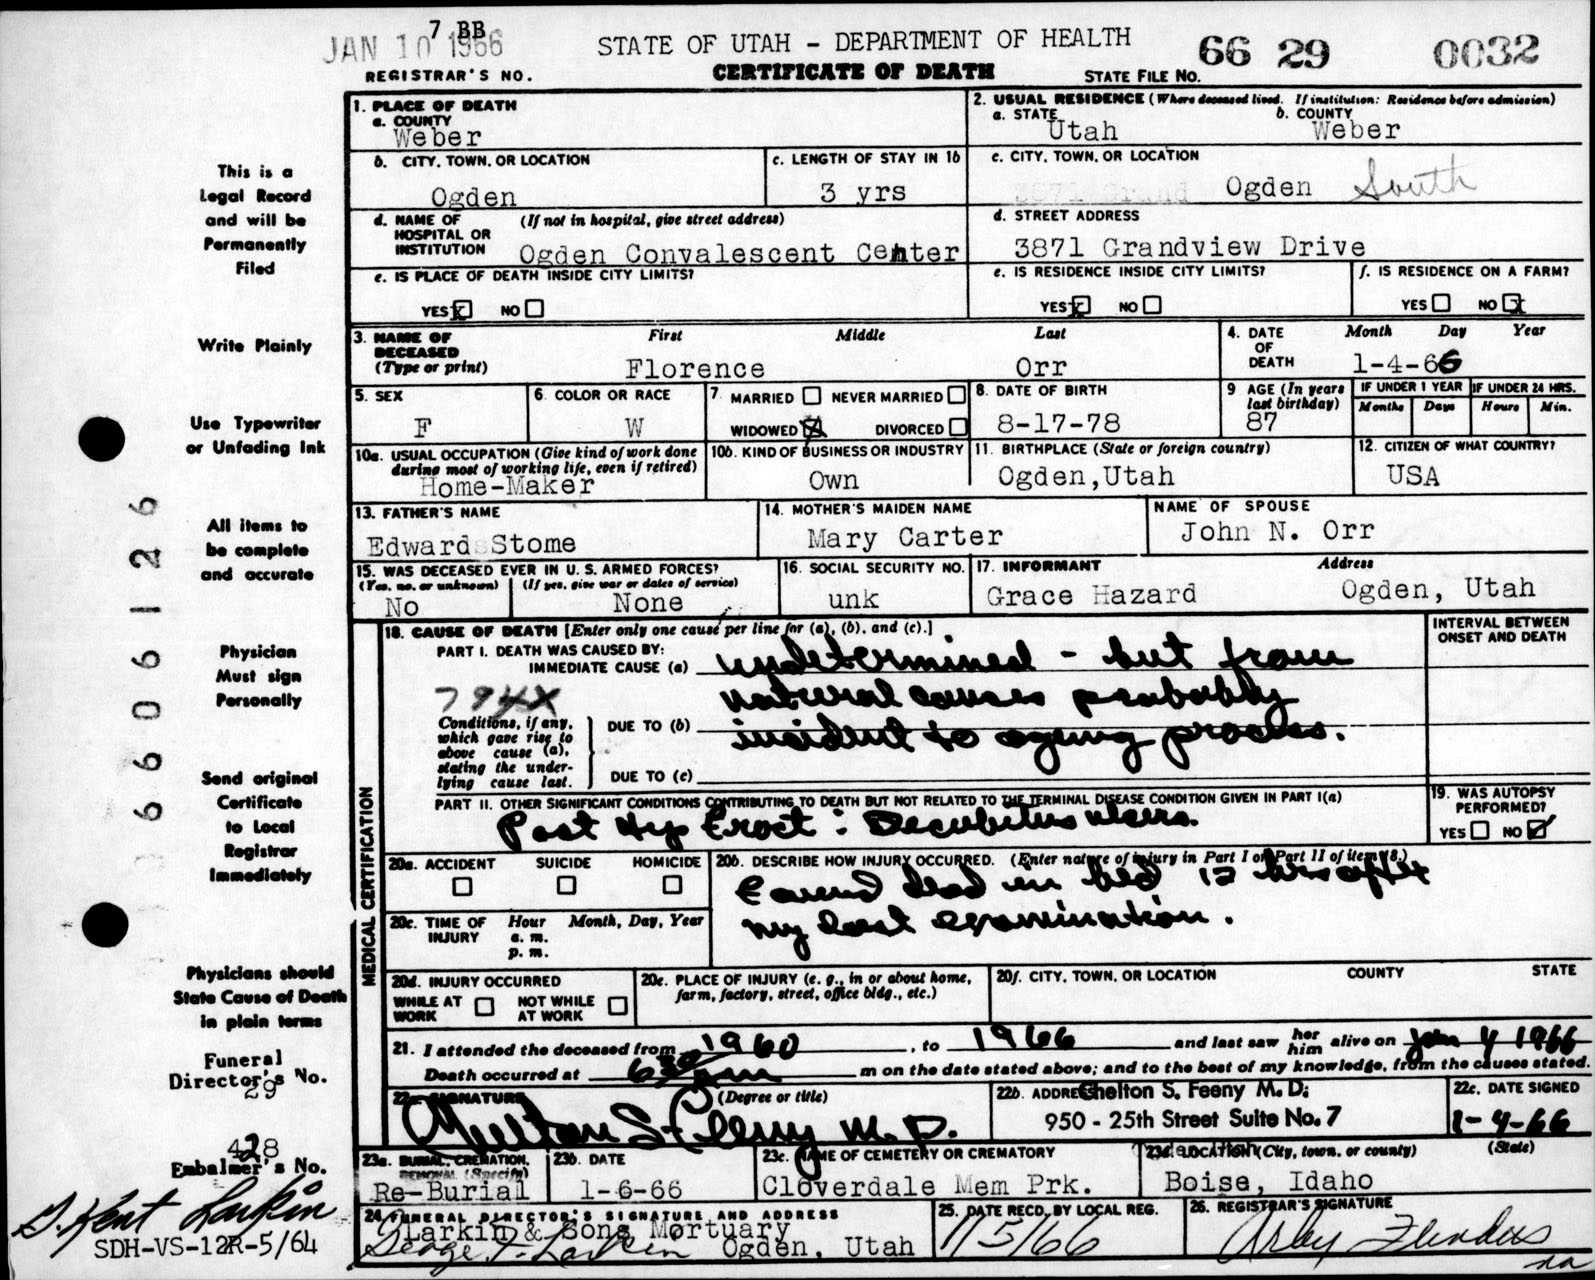 7 BB
JAN 10 1966
REGISTRAR'S NO.
STATE OF UTAH - DEPARTMENT OF HEALTH
CERTIFICATE OF DEATH
STATE FILE NO. 66 29 0032
This is a
Legal Record
and will be
Permanently
Filed
Write Plainly
Use Typewriter
or Unfading Ink
All items to
be complete
and accurate
Physician
Must sign
Personally
Send original
Certificate
to Local
Registrar
Immediately
Physicians should
State Cause of Death
in plain terms
Funeral
Director's No.
29
428
Embalmer's No.
G. Kent Larkin
SDH-VS-12R-5/64
6606126
1. PLACE OF DEATH
a. COUNTY
Weber
2. USUAL RESIDENCE (Where deceased lived. If institution: Residence before admission)
a. STATE b. COUNTY
Utah Weber
b. CITY, TOWN, OR LOCATION
Ogden
c. LENGTH OF STAY IN 1b
3 yrs
c. CITY, TOWN, OR LOCATION
Ogden South
d. NAME OF (If not in hospital, give street address)
HOSPITAL OR
INSTITUTION Ogden Convalescent Center
d. STREET ADDRESS
3871 Grandview Drive
e. IS PLACE OF DEATH INSIDE CITY LIMITS?
YES X NO
e. IS RESIDENCE INSIDE CITY LIMITS?
YES X NO
f. IS RESIDENCE ON A FARM?
YES NO X
3. NAME OF First Middle Last
DECEASED
(Type or print) Florence Orr
4. DATE Month Day Year
OF
DEATH 1-4-66
5. SEX
F
6. COLOR OR RACE
W
7. MARRIED NEVER MARRIED
WIDOWED X DIVORCED
8. DATE OF BIRTH
8-17-78
9 AGE (In years
last birthday)
87
IF UNDER 1 YEAR IF UNDER 24 HRS.
Months Days Hours Min.
10a. USUAL OCCUPATION (Give kind of work done
during most of working life, even if retired)
Home-Maker
10b. KIND OF BUSINESS OR INDUSTRY
Own
11. BIRTHPLACE (State or foreign country)
Ogden, Utah
12. CITIZEN OF WHAT COUNTRY?
USA
13. FATHER'S NAME
Edward Stome
14. MOTHER'S MAIDEN NAME
Mary Carter
NAME OF SPOUSE
John N. Orr
15. WAS DECEASED EVER IN U. S. ARMED FORCES?
(Yes, no, or unknown) (If yes, give war or dates of service)
No None
16. SOCIAL SECURITY NO.
unk
17. INFORMANT Address
Grace Hazard Ogden, Utah
MEDICAL CERTIFICATION
18. CAUSE OF DEATH [Enter only one cause per line for (a), (b), and (c).]
INTERVAL BETWEEN
ONSET AND DEATH
PART I. DEATH WAS CAUSED BY:
IMMEDIATE CAUSE (a) undetermined - but from
794X natural causes probably
Conditions, if any,
which gave rise to
above cause (a),
stating the under-
lying cause last.
DUE TO (b) incident to ageing process.
DUE TO (c)
PART II. OTHER SIGNIFICANT CONDITIONS CONTRIBUTING TO DEATH BUT NOT RELATED TO THE TERMINAL DISEASE CONDITION GIVEN IN PART I(a)
Post Hip Fract: Decubitus ulcers.
19. WAS AUTOPSY
PERFORMED?
YES NO
20a. ACCIDENT SUICIDE HOMICIDE
20b. DESCRIBE HOW INJURY OCCURRED. (Enter nature of injury in Part I or Part II of item 18.)
Found dead in bed 12 hrs after
my last examination.
20c. TIME OF Hour Month, Day, Year
INJURY a. m.
p. m.
20d. INJURY OCCURRED
WHILE AT NOT WHILE
WORK AT WORK
20e. PLACE OF INJURY (e. g., in or about home,
farm, factory, street, office bldg., etc.)
20f. CITY, TOWN, OR LOCATION COUNTY STATE
21. I attended the deceased from 1960, to 1966 and last saw her him alive on Jan 4 1966
Death occurred at 6 30 am m on the date stated above; and to the best of my knowledge, from the causes stated.
22a. SIGNATURE (Degree or title)
Chelton S. Feeny M.D.
22b. ADDRESS Chelton S. Feeny M.D.
950 - 25th Street Suite No. 7
Ogden, Utah
22c. DATE SIGNED
1-4-66
23a. BURIAL, CREMATION,
REMOVAL (Specify)
Re-Burial
23b. DATE
1-6-66
23c. NAME OF CEMETERY OR CREMATORY
Cloverdale Mem Prk.
23d. LOCATION (City, town, or county) (State)
Boise, Idaho
24. FUNERAL DIRECTOR'S SIGNATURE AND ADDRESS
Larkin & Sons Mortuary
George P. Larkin Ogden, Utah
25. DATE RECD. BY LOCAL REG.
1/5/66
26. REGISTRAR'S SIGNATURE
na